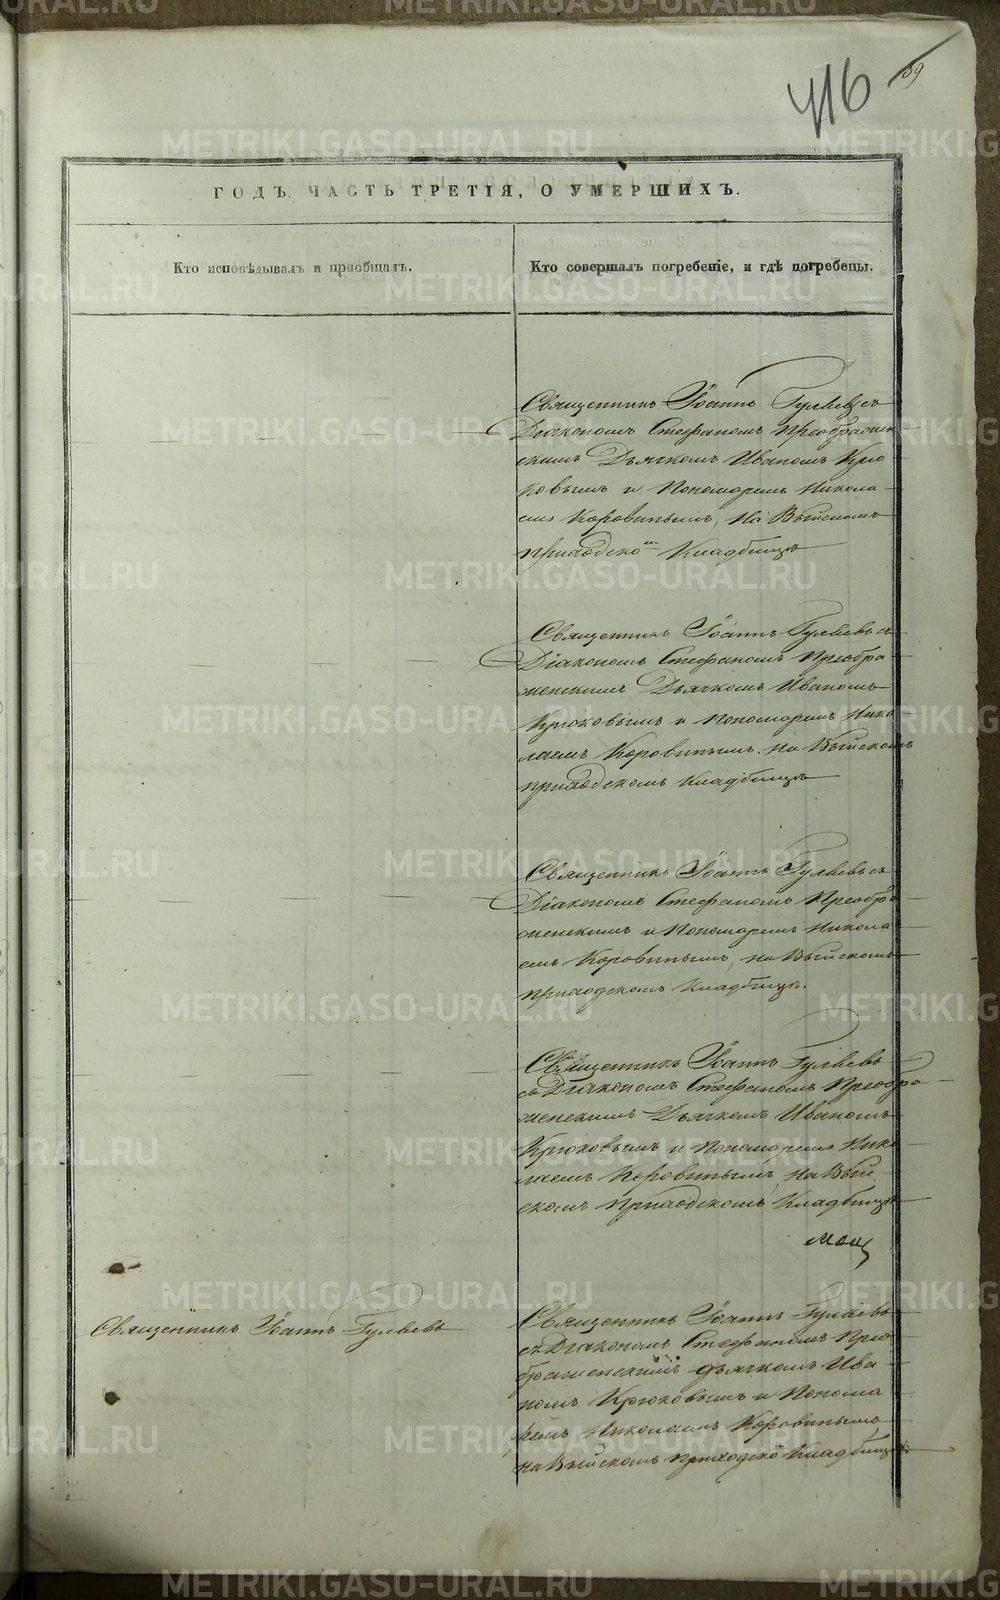 416
59
ГОДЪ, ЧАСТЬ ТРЕТІЯ, О УМЕРШИХЪ.
Кто исповѣдывалъ и пріобщалъ.
Кто совершалъ погребеніе, и гдѣ погребены.
Священникъ Іоаннъ Гуляевъ съ
Діакономъ Стефаномъ Преображен
скимъ Дьячкомъ Иваномъ Крю
ковымъ и Пономаремъ Никола
емъ Коровинымъ, на Выйскомъ
приходскомъ Кладбищѣ
Священникъ Іоаннъ Гуляевъ съ
Діакономъ Стефаномъ Преобра
женскимъ Дьячкомъ Иваномъ
Крюковымъ и Пономаремъ Нико
лаемъ Коровинымъ на Выйскомъ
приходскомъ Кладбищѣ
Священникъ Іоаннъ Гуляевъ съ
Діакономъ Стефаномъ Преобра
женскимъ и Пономаремъ Никола
емъ Коровинымъ, на Выйскомъ
приходскомъ Кладбищѣ.
Священникъ Іоаннъ Гуляевъ
съ Діакономъ Стефаномъ Преобра
женскимъ Дьячкомъ Иваномъ
Крюковымъ и Пономаремъ Нико
лаемъ Коровинымъ, на Вый
скомъ Приходскомъ Кладбищѣ
Священникъ Іоаннъ Гуляевъ
Священникъ Іоаннъ Гуляевъ
съ Діакономъ Стефаномъ Прео
браженскимъ дьячкомъ Ива
номъ Крюковымъ и Понома
ремъ Николаемъ Коровинымъ
на Выйскомъ приходско Кладбищѣ
METRIKI.GASO-URAL.RU